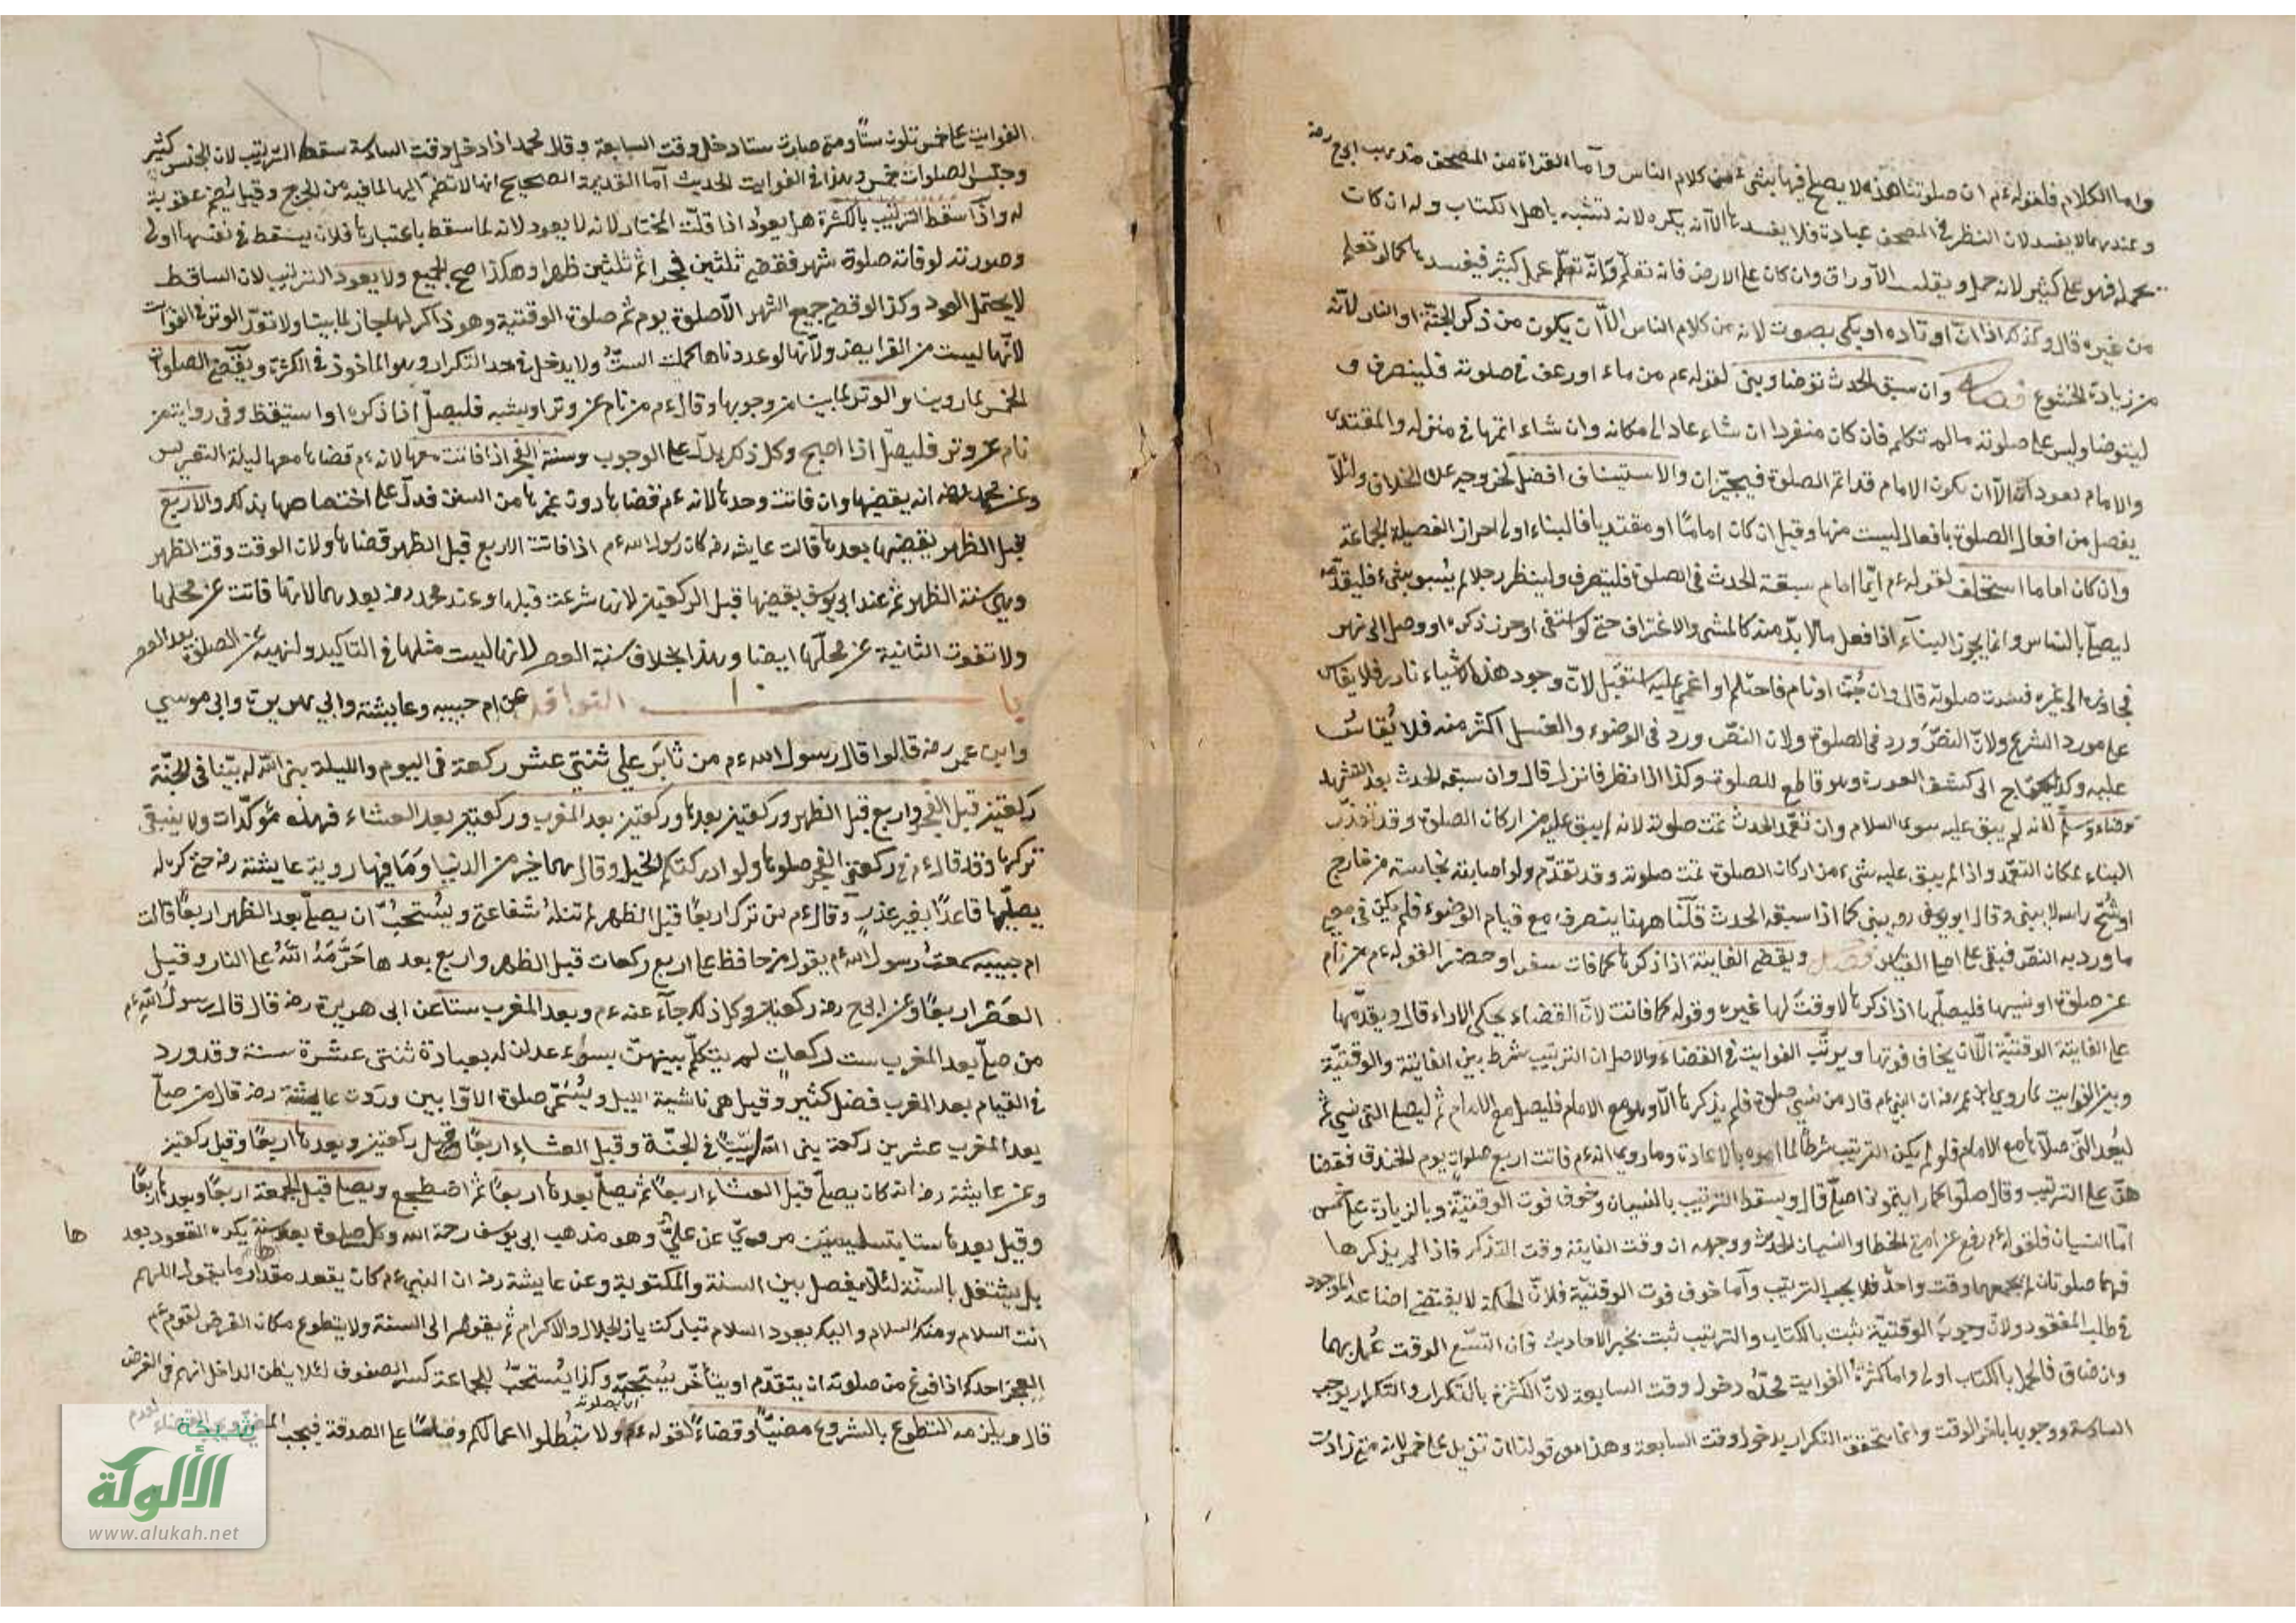 واما الكلام فلقوله ءم ان صلوتنا هذه لا يصلح فيها شىء من كلام الناس وأما القراة من المصحف مذهب ابى ح رضه
وعندهما لا يفسد لان النظر فى المصحف عبادة فلا يفسدها الا انه يكره لانه تشبه باهل الكتاب وله ان كان
يحمله فهو عمل كثير لانه حمل ويقلب الاوراق وان كان على الارض فانه تعلم وانه تعلم عمل كثير فيفسدها كما لو تعلم
من غيره قال وكذلك اذا انّ او تاوه او بكى بصوت لانه من كلام الناس الا ان يكون من ذكر الجنة او النار لانه
من زيادة الخشوع فصل وان سبق الحدث توضا وبنى لقوله ءم من قاء او رعف فى صلوته فلينصرف و
ليتوضا وليبن على صلوته ما لم تكلم فان كان منفردا ان شاء عاد الى مكانه وان شاء اتمها فى منزله والمقتدى
والامام يعود الا ان يكون الامام قد اتم الصلوة فيخيران والاستيناف افضل لخروجه عن الخلاف ولئلا
يفصل من افعال الصلوة بافعال ليست منها وقيل ان كان اماما او مقتديا فالبناء اولى احراز الفضيلة الجماعة
وان كان اماما استخلف لقوله ءم ايما امام سبقه الحدث فى الصلوة فلينصرف ولينظر رجلا لم يسبق بشىء فليقدمه
ليصلى بالناس وانما يجوز البناء اذا فعل ما لا بد منه كالمشى والاغتراف حتى لو استقى او خرز دلوه او وصل الى نهر
فجاوزه الى غيره فسدت صلوته قال وان جن او نام فاحتلم او اغمى عليه استقبل لان وجود هذه الاشياء نادر فلا يقاس
على مورد الشرع ولان النص ورد فى الصلوة ولان النص ورد فى الوضوء والغسل اكثر منه فلا يقاس
عليه وكذا يحتاج الى كشف العورة وهو قاطع للصلوة وكذا اذا نظر فانزل قال وان سبقه الحدث بعد التشهد
توضاء وسلم لانه لم يبق عليه سوى السلام وان تعمد الحدث تمت صلوته لانه لم يبق عليه من اركان الصلوة وقد تعذر
البناء لمكان التعمد واذا لم يبق عليه شىء من اركان الصلوة تمت صلوته وقد تقدم ولو اصابته نجاسة من خارج
او شج راسه لا يبنى وقال ابو يوسف رح يبنى كما اذا سبقه الحدث قلنا ههنا ينصرف مع قيام الوضوء فلم يكن فى معنى
ما ورد به النص فبقى على اصل القياس فصل ويقضى الفايتة اذا ذكرها كما فات سفرا او حضرا لقوله ءم من نام
عن صلوة او نسيها فليصلها اذا ذكرها لا وقت لها غيره وقوله كما فاتت لان القضاء يحكى الاداء قال ويقدمها
على الفايتة الوقتية الا ان يخاف فوتها ويرتب الفوايت فى القضاء والاصل ان الترتيب شرط بين الفايتة والوقتية
وبين الفوايت لما روى ابن عمر رضه ان النبى ءم قال من نسى صلوة فلم يذكرها الا وهو مع الامام فليصل مع الامام ثم ليصل التى نسى ثم
ليعد التى صلاها مع الامام فلو لم يكن الترتيب شرطا لما امره بالاعادة وما روى انه ءم فاتت اربع صلوات يوم الخندق فقضا
هن على الترتيب وقال صلوا كما رايتمونى اصلى قال ويسقط الترتيب بالنسيان وخوف فوت الوقتية وبالزيادة على خمس
اما النسيان فلقوله ءم رفع عن امتى الخطا والنسيان الحديث ووجهه ان وقت الفايتة وقت التذكر فاذا لم يذكرها
فهما صلوتان لم يجمعهما وقت واحد فلا يجب الترتيب وأما خوف فوت الوقتية فلان الحكمة لا يقتضى اضاعة الموجود
فى طلب المفقود ولان وجوب الوقتية ثبت بالكتاب والترتيب ثبت بخبر الاحاديث فان اتسع الوقت عمل بهما
وان ضاق فالعمل بالكتاب اولى واما كثرة الفوايت فحده دخول وقت السابعة لان الكثرة بالتكرار والتكرار يوجب
السادسة ووجوبها باخر الوقت وانما يتحقق التكرار بدخول وقت السابعة وهذا معنى قولنا ان تزيد على خمس لانه متى زادت
الفوايت على خمس تكون ستا ومتى صارت ستا دخل وقت السابعة وقال محمد اذا دخل وقت السادسة سقط الترتيب لان الجنس كثير
وجنس الصلوات خمس وهذا فى الفوايت الحديث أما القديمة الصحيح انها لا تضم اليها لما فيه من الحرج وقيل يضم عقوبة
له واذا سقط الترتيب بالكثرة هل يعود اذا قلت المختار لانه لا يعود لانه لما سقط باعتبارها فلان يسقط فى نفسها اولى
وصورته لو فاته صلوة شهر فقضى ثلثين فجرا ثم ثلثين ظهرا وهكذا صح الجميع ولا يعود الترتيب لان الساقط
لا يحتمل العود وكذا لو قضى جميع الشهر الا صلوة يوم ثم صلوة الوقتية وهو ذاكر لها جاز لما بينا ولا تعد الوتر فى الفوات
لانها ليست من الفرايض ولانها لو عددناها كملت الست ولا يدخل فى حد التكرار وهو الماخوذ فى الكثرة ويقضى الصلوة
الخمس لما روينا والوتر لما بينا من وجوبها وقال ءم من نام عن وتر او نسيه فليصل اذا ذكره او استيقظ وفى رواية من
نام عن وتر فليصل اذا اصبح وكل ذكر يدل على الوجوب وسنة الفجر اذا فاتت معها لانه ءم قضاها معها ليلة التعريس
وعن محمد رضه انه يقضيها وان فاتت وحدها لانه ءم قضاها دون غيرها من السنن فدل على اختصاصها بذلك والاربع
قبل الظهر يقضيها بعدها قالت عايشه رضه كان رسول الله ءم اذا فاتته الاربع قبل الظهر قضاها ولان الوقت وقت الظهر
وهى سنة الظهر ثم عند ابى يوسف يقضيها قبل الركعتين لانها شرعت قبلها وعند محمد رضه بعدهما لانها فاتت عن محلها
ولا تفوت الثانية عن محلها ايضا وهذا بخلاف سنة العصر لانها ليست مثلها فى التاكيد ولنهيه عن الصلوة بعد العصر
باب النوافل عن ام حبيبه وعايشة وابي هريرت وابى موسي
وابن عمر رضه قالوا قال رسول الله ءم من ثابر علي ثنتي عشر ركعة فى اليوم والليلة بنى الله له بيتا فى الجنة
ركعتين قبل الفجر واربع قبل الظهر وركعتين بعدها وركعتين بعد المغرب وركعتين بعد العشاء فهذه مؤكدات ولا ينبغى
تركها وقد قال ءم فى ركعتى الفجر صلوها ولو ادركتكم الخيل وقال هما خير من الدنيا وما فيها رويه عايشة رضه حتى كره له
يصليها قاعدًا بغير عذر وقال ءم من ترك اربعًا قبل الظهر لم تنله شفاعتى ويستحب ان يصلى بعد الظهر اربعًا قالت
ام حبيبه سمعت رسول الله ءم يقول من حافظ على اربع ركعات قبل الظهر واربع بعدها حرمه الله على النار وقبل
العصر اربعًا وعن ابى ح رضه ركعتين وكل ذلك جاء عنه ءم وبعد المغرب ستا عن ابى هريرة رضه قال قال رسول الله ءم
من صلى بعد المغرب ست ركعات لم يتكلم بينهن بسوء عدلن له بعبادة ثنتى عشرة سنة وقد ورد
فى القيام بعد المغرب فضل كثير وقيل هى ناشية الليل ويسمى صلوة الاوابين وردت عايشة رضه قال من صلى
بعد المغرب عشرين ركعة بنى الله له بيتًا فى الجنة وقبل العشاء اربعًا وقيل ركعتين وبعدها اربعًا وقيل ركعتين
وعن عايشة رضه انه كان يصلى قبل العشاء اربعا ثم يصلى بعدها اربعًا ثم اضطجع ويصلى قبل الجمعة اربعًا وبعدها اربعًا
وقيل بعدها ستا بتسليمتين مروى عن على وهو مذهب ابى يوسف رحمة الله وكل صلوة بعدها سنة يكره القعود بعد ها
بل يشتغل بالسنة لئلا يفصل بين السنة والمكتوبة وعن عايشة رضه ان النبى ءم كان يقعد مقدار ما يقول اللهم
انت السلام ومنك السلام واليك يعود السلام تباركت ياذ الجلال والاكرام ثم يقوم الى السنة ولا يتطوع مكان الفرض لقوم ءم
ايعجز احدكم اذا فرغ من صلوته ان يتقدم او يتأخر بسبحته وكذا يستحب للجماعة كسر الصفوف لئلا يظن الداخل انهم فى الفرض
قال ويلزمه التطوع بالشروع مضيًا وقضاءً لقوله ءم ولا تبطلوا اعمالكم وقياسًا على الصدقة فيجب
شبكة
الألوكة
www.alukah.net